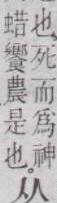 也、死而爲神
蜡饗農是也。
从